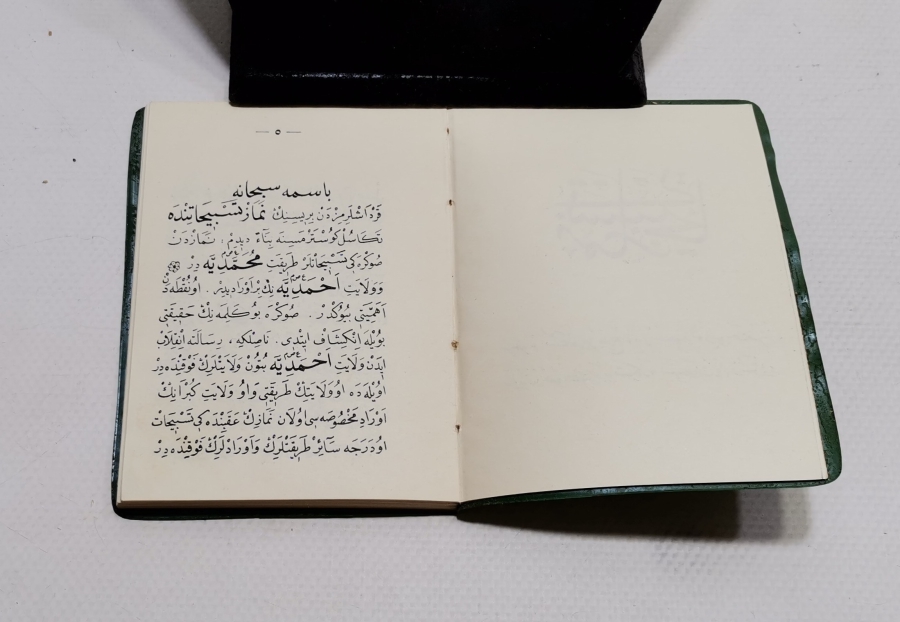 ٥
باسمه سبحانه
قَرْدَاشْلَرِمِزْدَنْ بِرِيسِينِكْ نَمَازْ تَسْبِيحَاتِنْدَه
تَكَاسُلْ كُوسْتَرْمَسِينَه بِنَاءً دِيدِمْ : نَمَازْدَنْ
صُوكْرَه كِى تَسْبِيحَاتْلَرْ طَرِيقَتِ مُحَمَّدِيَّه دِرْ
وَوِلَايَتِ اَحْمَدِيَّه نِكْ بِرْ اَوْرَادِيدِرْ . اُو نُقْطَه دَنْ
اَهَمِّيَتِى بُيُوكْدُرْ . صُوكْرَه بُو كَلِمَه نِكْ حَقِيقَتِى
بُويْلَه اِنْكِشَافْ اِيتْدِى . نَاصِلْكِه ، رِسَالَتَه اِنْقِلَابْ
اِيدَنْ وِلَايَتِ اَحْمَدِيَّه بُتُونْ وِلَايَتْلَرِكْ فَوْقِنْدَه دِرْ
اُويْلَه دَه اُو وِلَايَتِكْ طَرِيقَتِى وَاُو وِلَايَتِ كُبْرَانِكْ
اَوْرَادِ مَخْصُوصَه سِى اُولَانْ نَمَازِكْ عَقِبِنْدَه كِى تَسْبِيحَاتْ
اُو دَرَجَه سَائِرْ طَرِيقَتْلَرِكْ وَاَوْرَادْلَرِكْ فَوْقِنْدَه دِرْ